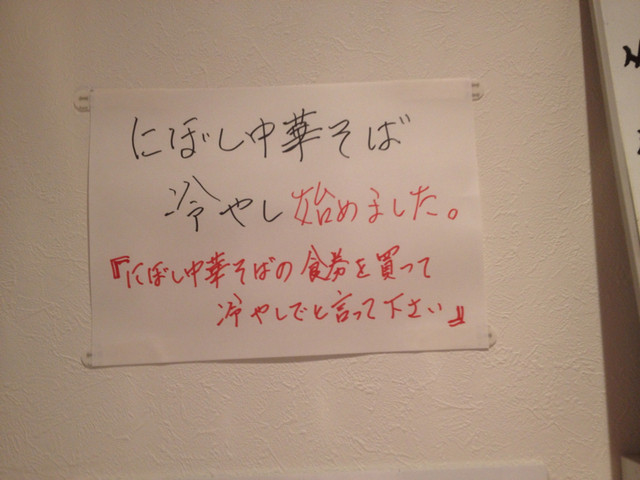 にぼし中華そば
冷やし始めました。
『にぼし中華そばの食券を買って
冷やしでと言って下さい』